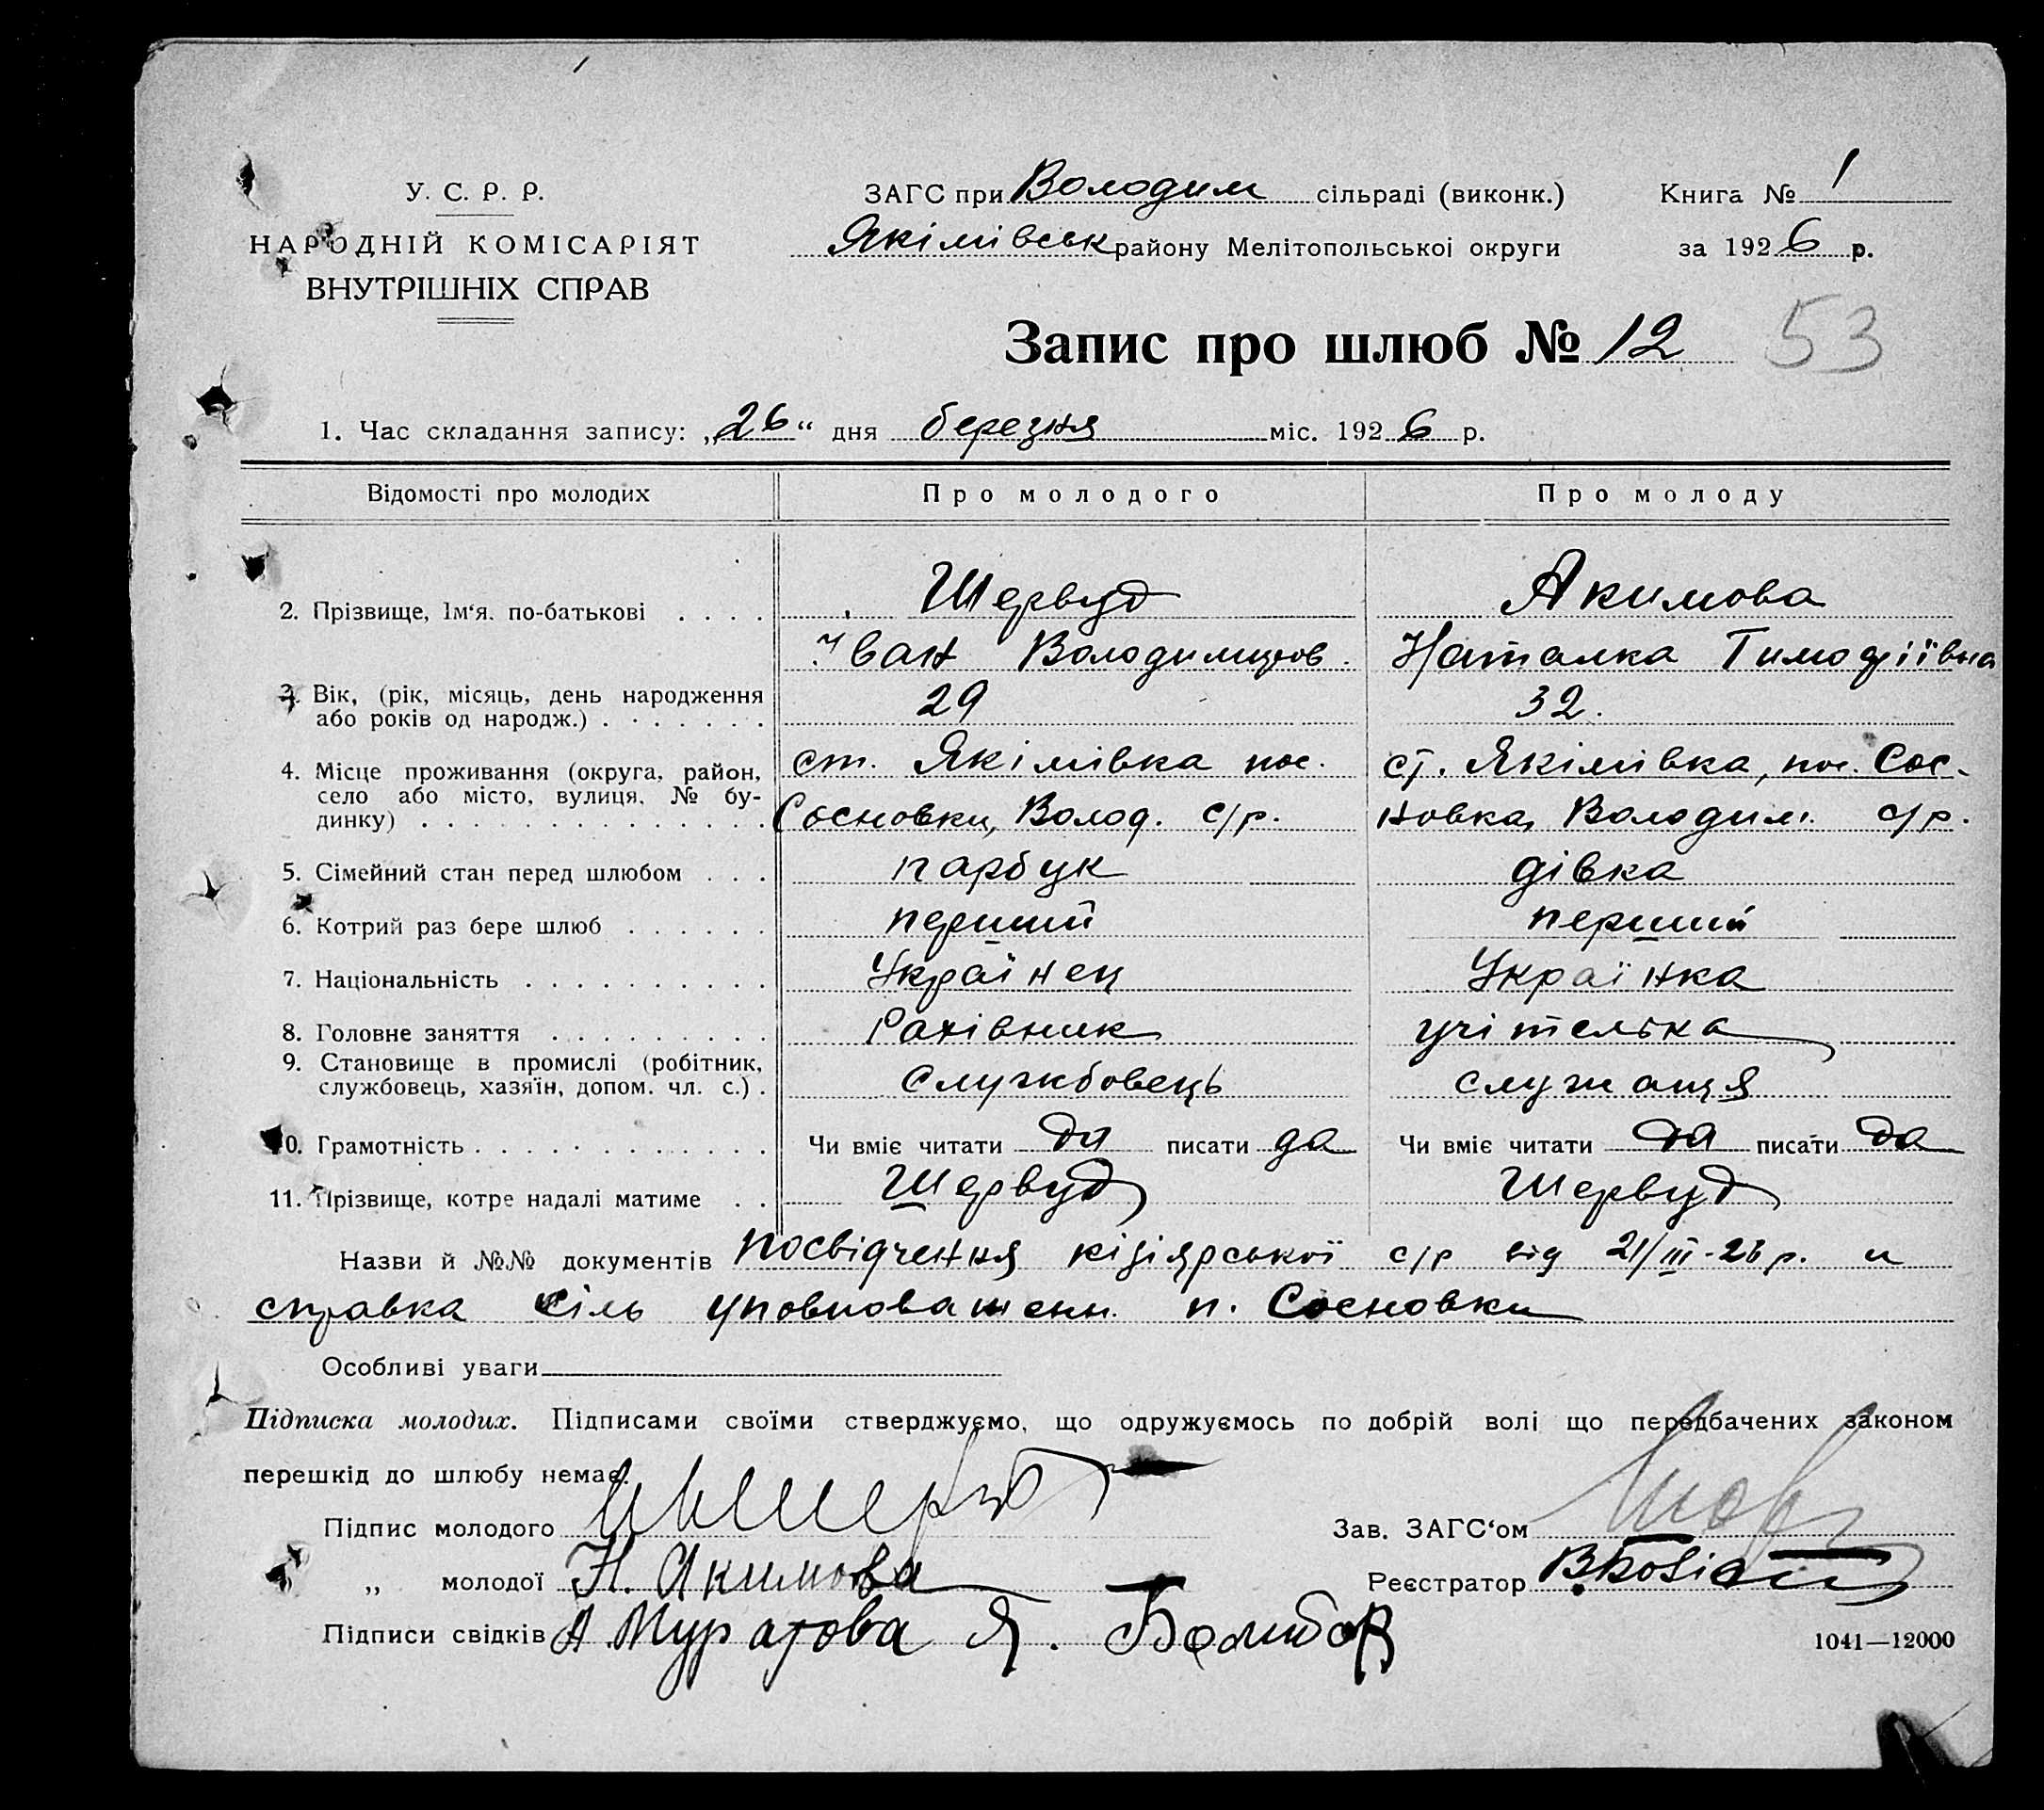 У. С. Р. Р.
НАРОДНІЙ КОМІСАРІЯТ
ВНУТРІШНІХ СПРАВ
ЗАГС при Володим сільраді (виконк.)
Якімівськ району Мелітопольської округи
Книга № 1
за 1926 р.
Запис про шлюб № 12
53
1. Час складання запису: „26“ дня березня міс. 1926 р.
Відомості про молодих Про молодого Про молоду
2. Прізвище, Ім‘я. по-батькові . . . . Шервуд Акимова
Іван Володимиров. Наталка Тимофіївна
3. Вік, (рік, місяць, день народження
або років од народж.) . . . . . . . 29 32.
4. Місце проживання (округа, район, ст. Якімівка пос. ст. Якімівка, пос. Сос-
село або місто, вулиця, № бу- Сосновки, Волод. с/р. новка, Володим. с/р.
динку) . . . . . . . . . . . . . .
5. Сімейний стан перед шлюбом . . . парбук дівка
6. Котрий раз бере шлюб . . . . . . перший перший
7. Національність . . . . . . . . . . Українец Українка
8. Головне заняття . . . . . . . . . Рахівник учітелька
9. Становище в промислі (робітник,
службовець, хазяїн, допом. чл. с.) . Службовець служащя
10. Грамотність . . . . . . . . . . . . Чи вміє читати да писати да Чи вміє читати да писати да
11. Прізвище, котре надалі матиме . . Шервуд Шервуд
Назви й №№ документів посвідчення кізіярської с/р від 21/III-26 р. и
справка сіль уповноважен. п. Сосновки
Особливі уваги
Підписка молодих. Підписами своїми стверджуємо, що одружуємось по добрій волі що передбачених законом
перешкід до шлюбу немає.
Підпис молодого
Зав. ЗАГС‘ом
„ молодої Н. Акимова
Реєстратор
Підписи свідків А Муратова Я.
1041—12000